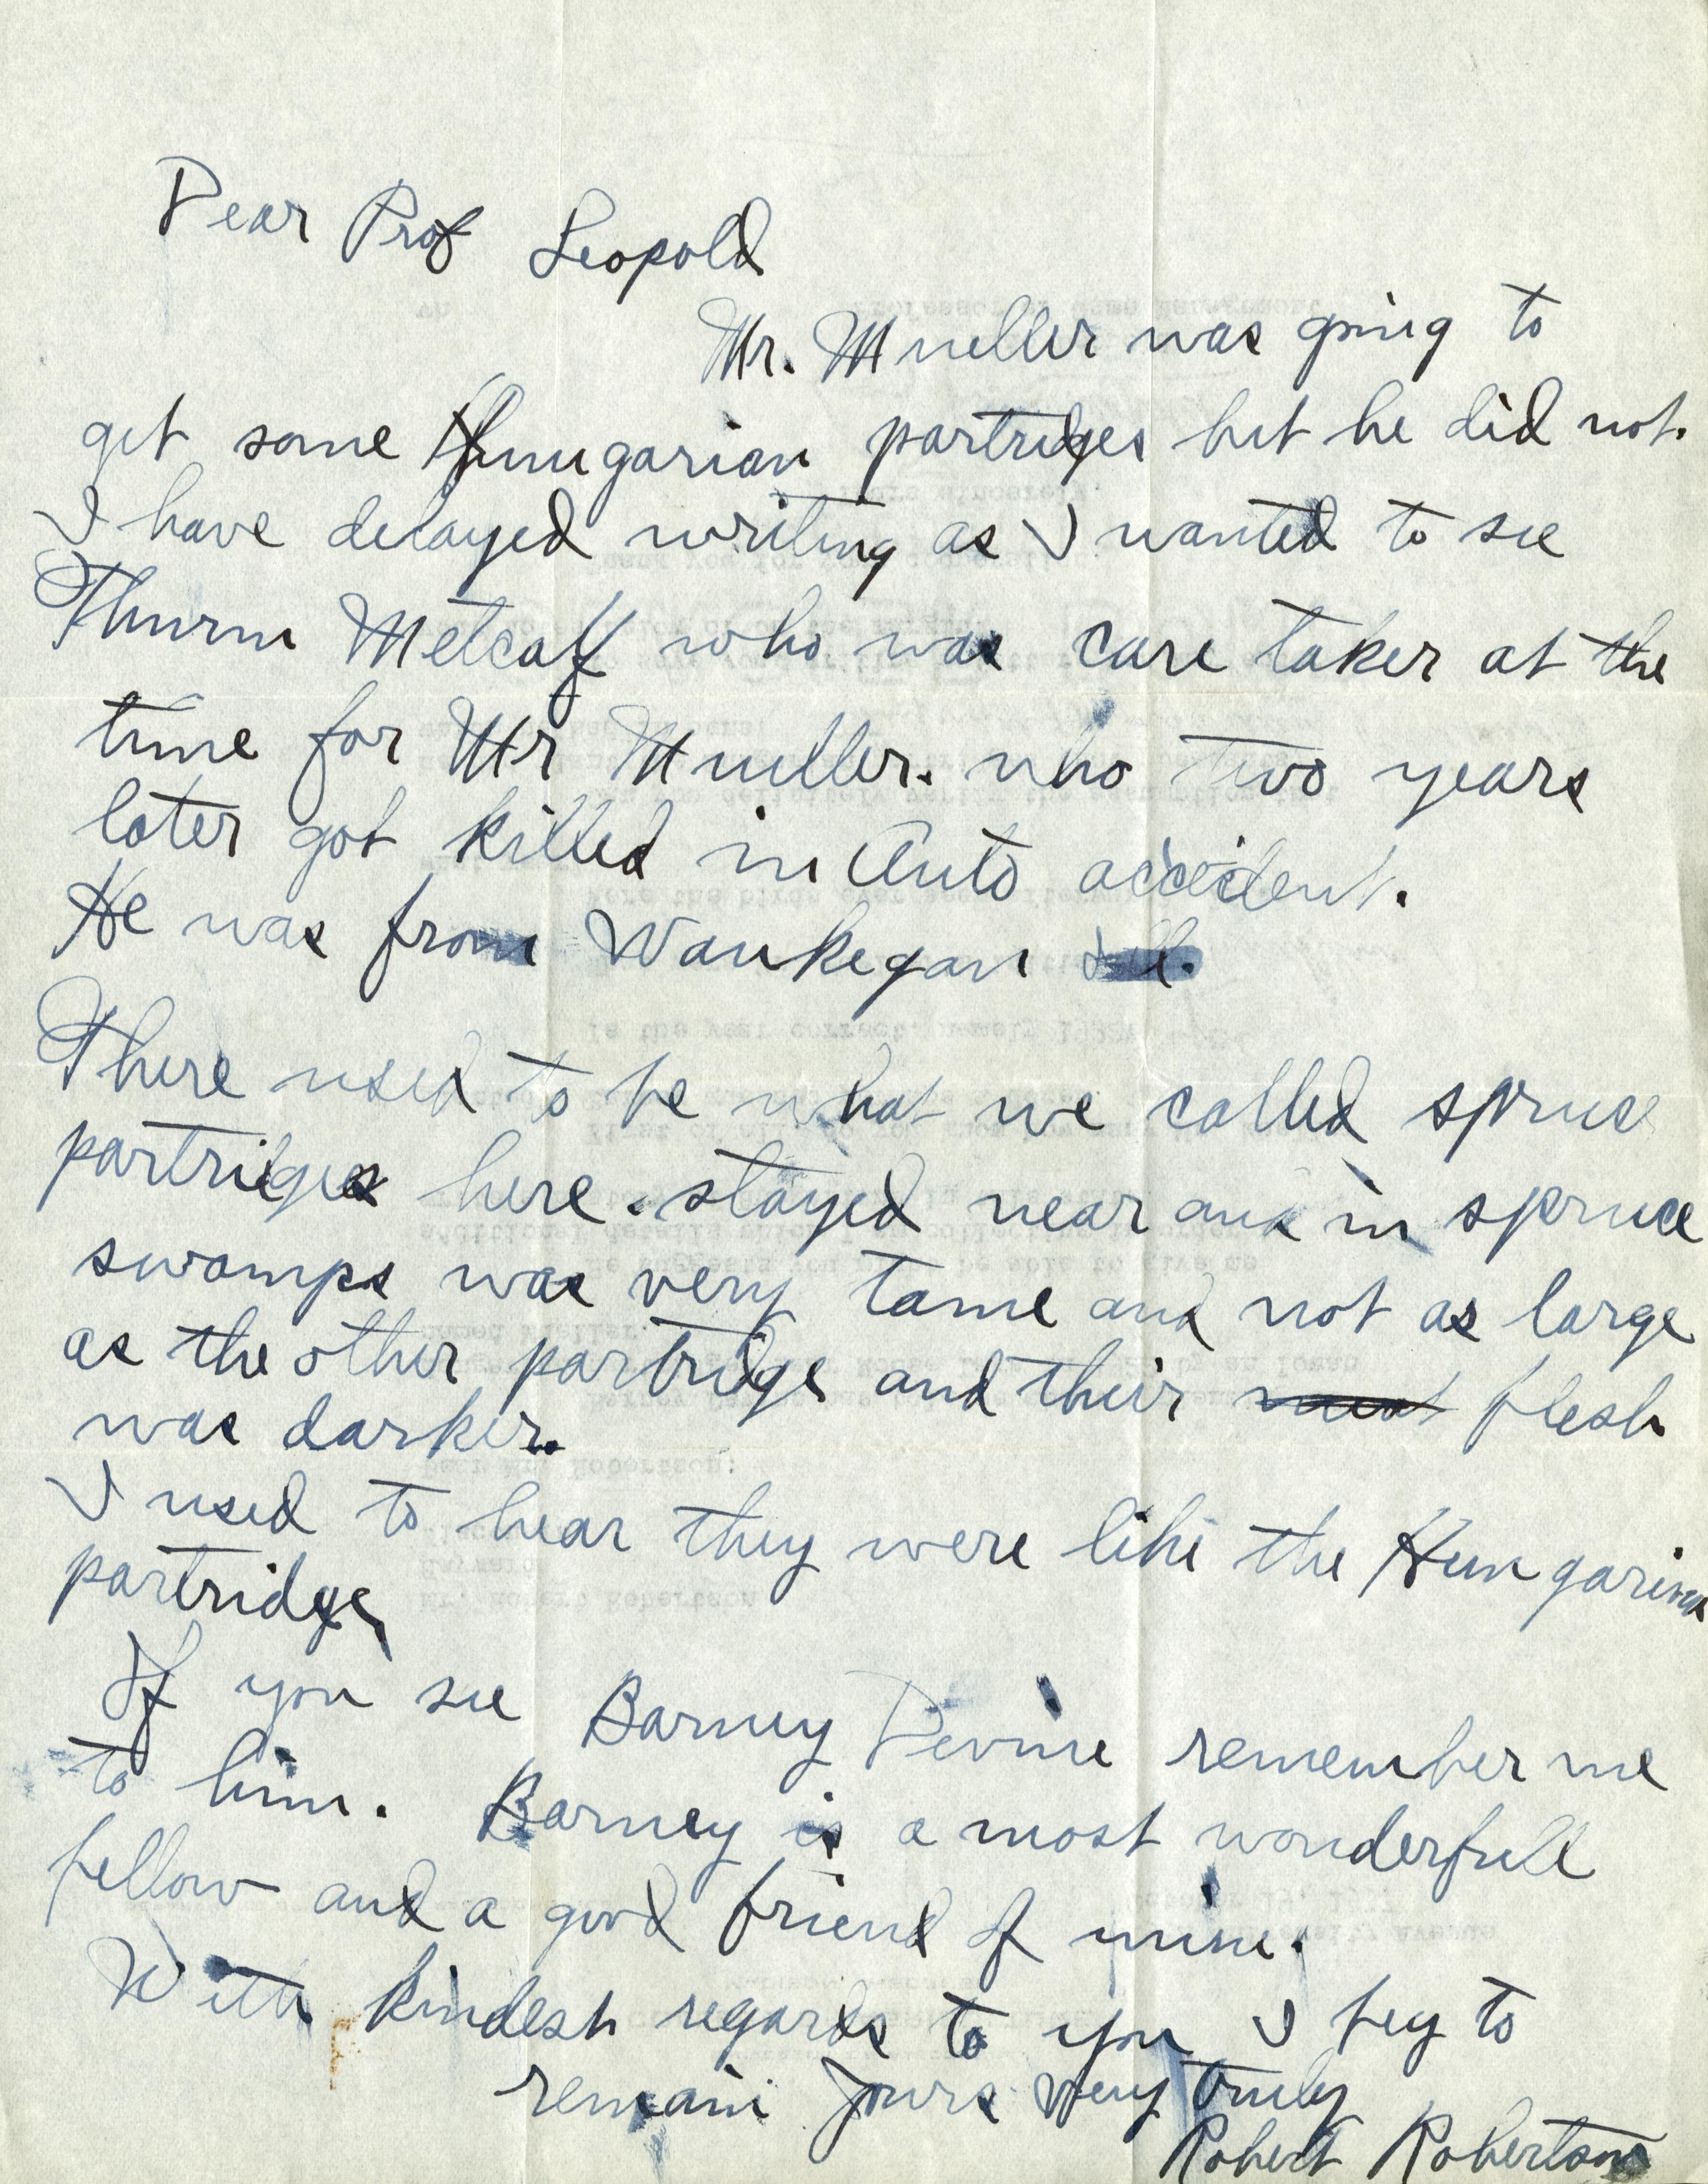 Dear Prof Leopold
Mr. Mueller was going to
get some Hungarian partridges but he did not.
I have delayed writing as I wanted to see
Thurm Metcalf who was care taker at the
time for Mr Mueller. who two years
later got killed in Auto accident.
He was from Waukegan Ill.
There used to be what we called spruce
partridges here. stayed near and in spruce
swamps was very tame and not as large
as the other partridge and their meat flesh
was darker.
I used to hear they were like the Hungarian
partridge
If you see Barney Devine remember me
to him. Barney is a most wonderfull
fellow and a good friend of mine.
With kindest regards to you I beg to
remain Yours Very truly
Robert Robertson